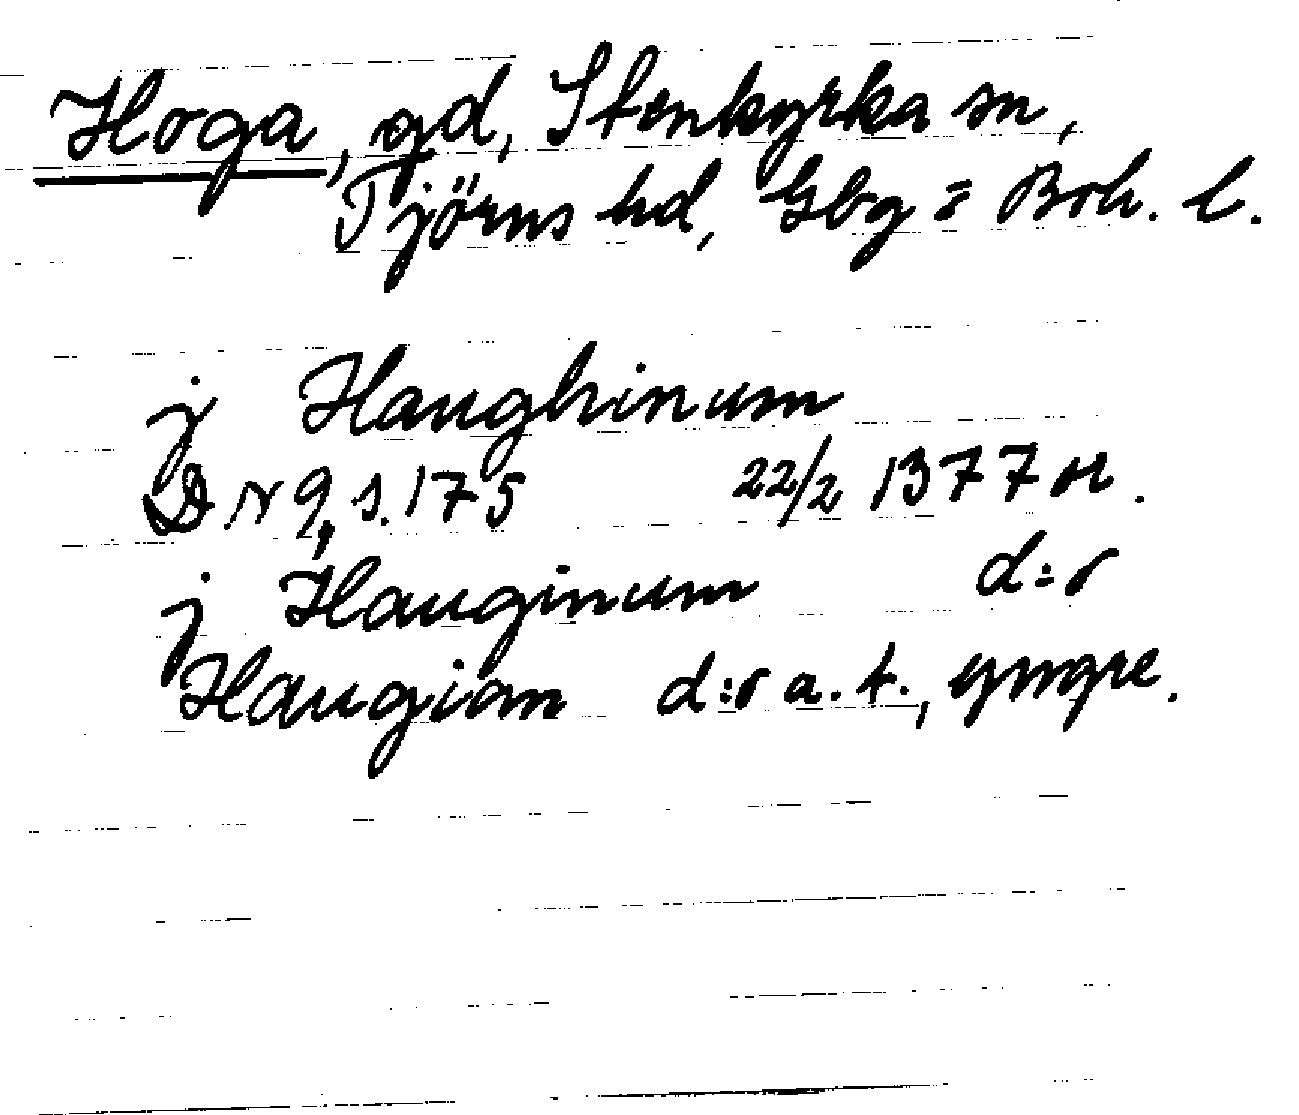 Hoga, gd, Stenkyrka sn,
Tjörns hd, Gbg = Boh. l.
j Haughinum
DN 9, s. 175 22/2 1377 or.
j Hauginum d:o
Haugian d:o a. t., yngre.